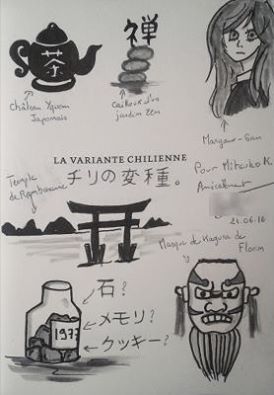 茶
禅
Château Yquem
Japonais
Cailloux d'un
jardin zen
Margaux-San
LA VARIANTE CHILIENNE
チリの変種。
Pour Mitsuko K.
Amicalement
21.06.16
Temple
de
Masque de Kagura de
Florin
石?
メモリ?
クッキー?
1977